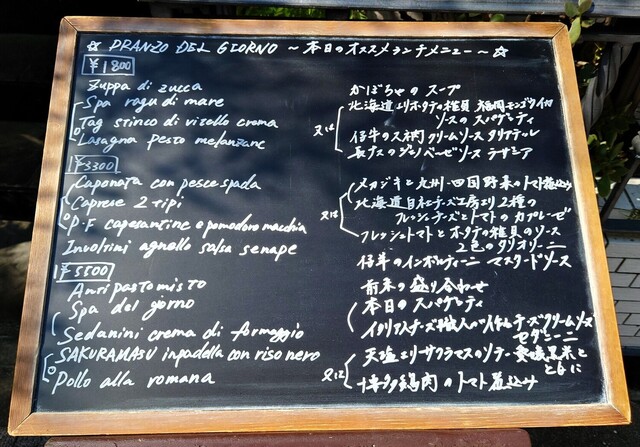 ☆ PRANZO DEL GIORNO ~本日のオススメランチメニュー~ ☆
¥1800
Zuppa di zucca かぼちゃのスープ
Spa ragu di mare 北海道エリホタテの稚貝
ソースのスパゲティ
o Tag stinco di vitello crema 又は 仔牛のスネ肉クリームソース タリアテッレ
Lasagna pesto melanzane 長ナスのジェノベーゼソース ラザニア
¥3300
Caponata con pesce spada メカジキと九州・四国野菜のトマト煮込み
Caprese 2 tipi 北海道自社チーズ工房より2種の
フレッシュチーズとトマトのカプレーゼ
o P.F capesantine e pomodoro macchia 又は フレッシュトマトとホタテの稚貝のソース
2色のタリオリーニ
Involtini agnello salsa senape 仔牛のインボルティーニ マスタードソース
¥5500
Antipasto misto 前菜の盛り合わせ
Spa del giorno 本日のスパゲティ
Sedanini crema di formaggio イタリアチーズ職人の チーズクリームソース
セダニーニ
SAKURAMASU inpadella con riso nero 天塩エリサクラマスのソテー 黒米と
ともに
o Pollo alla romana 又は 博多鶏肉のトマト煮込み